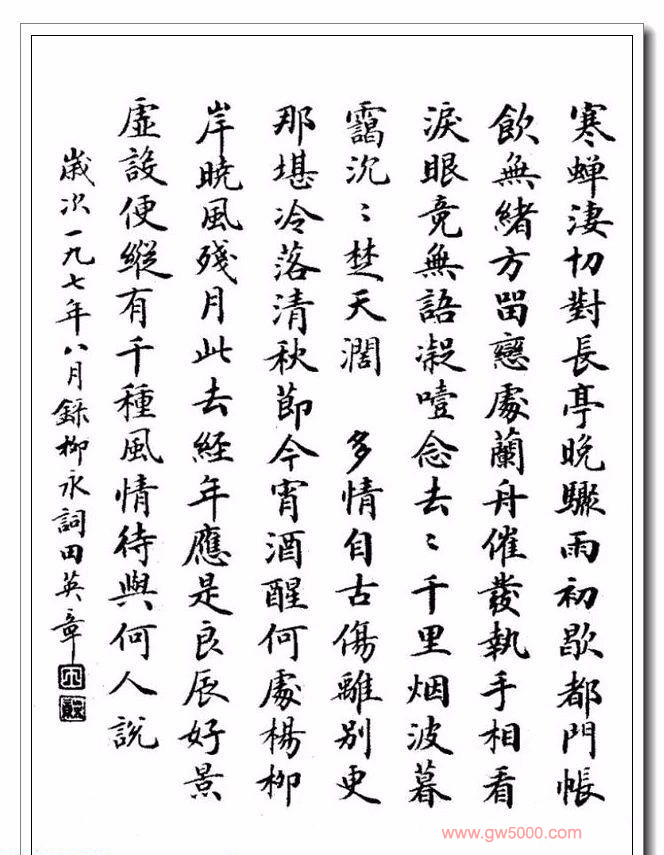 寒蟬淒切對長亭晚驟雨初歇都門帳
飲無緒方留戀處蘭舟催發執手相看
淚眼竟無語凝噎念去〻千里烟波暮
靄沉〻楚天濶 多情自古傷離別更
那堪冷落清秋節今宵酒醒何處楊柳
岸曉風殘月此去經年應是良辰好景
虛設便縱有千種風情待與何人說
歲次一九七年八月錄柳永詞田英章
www.gw5000.com